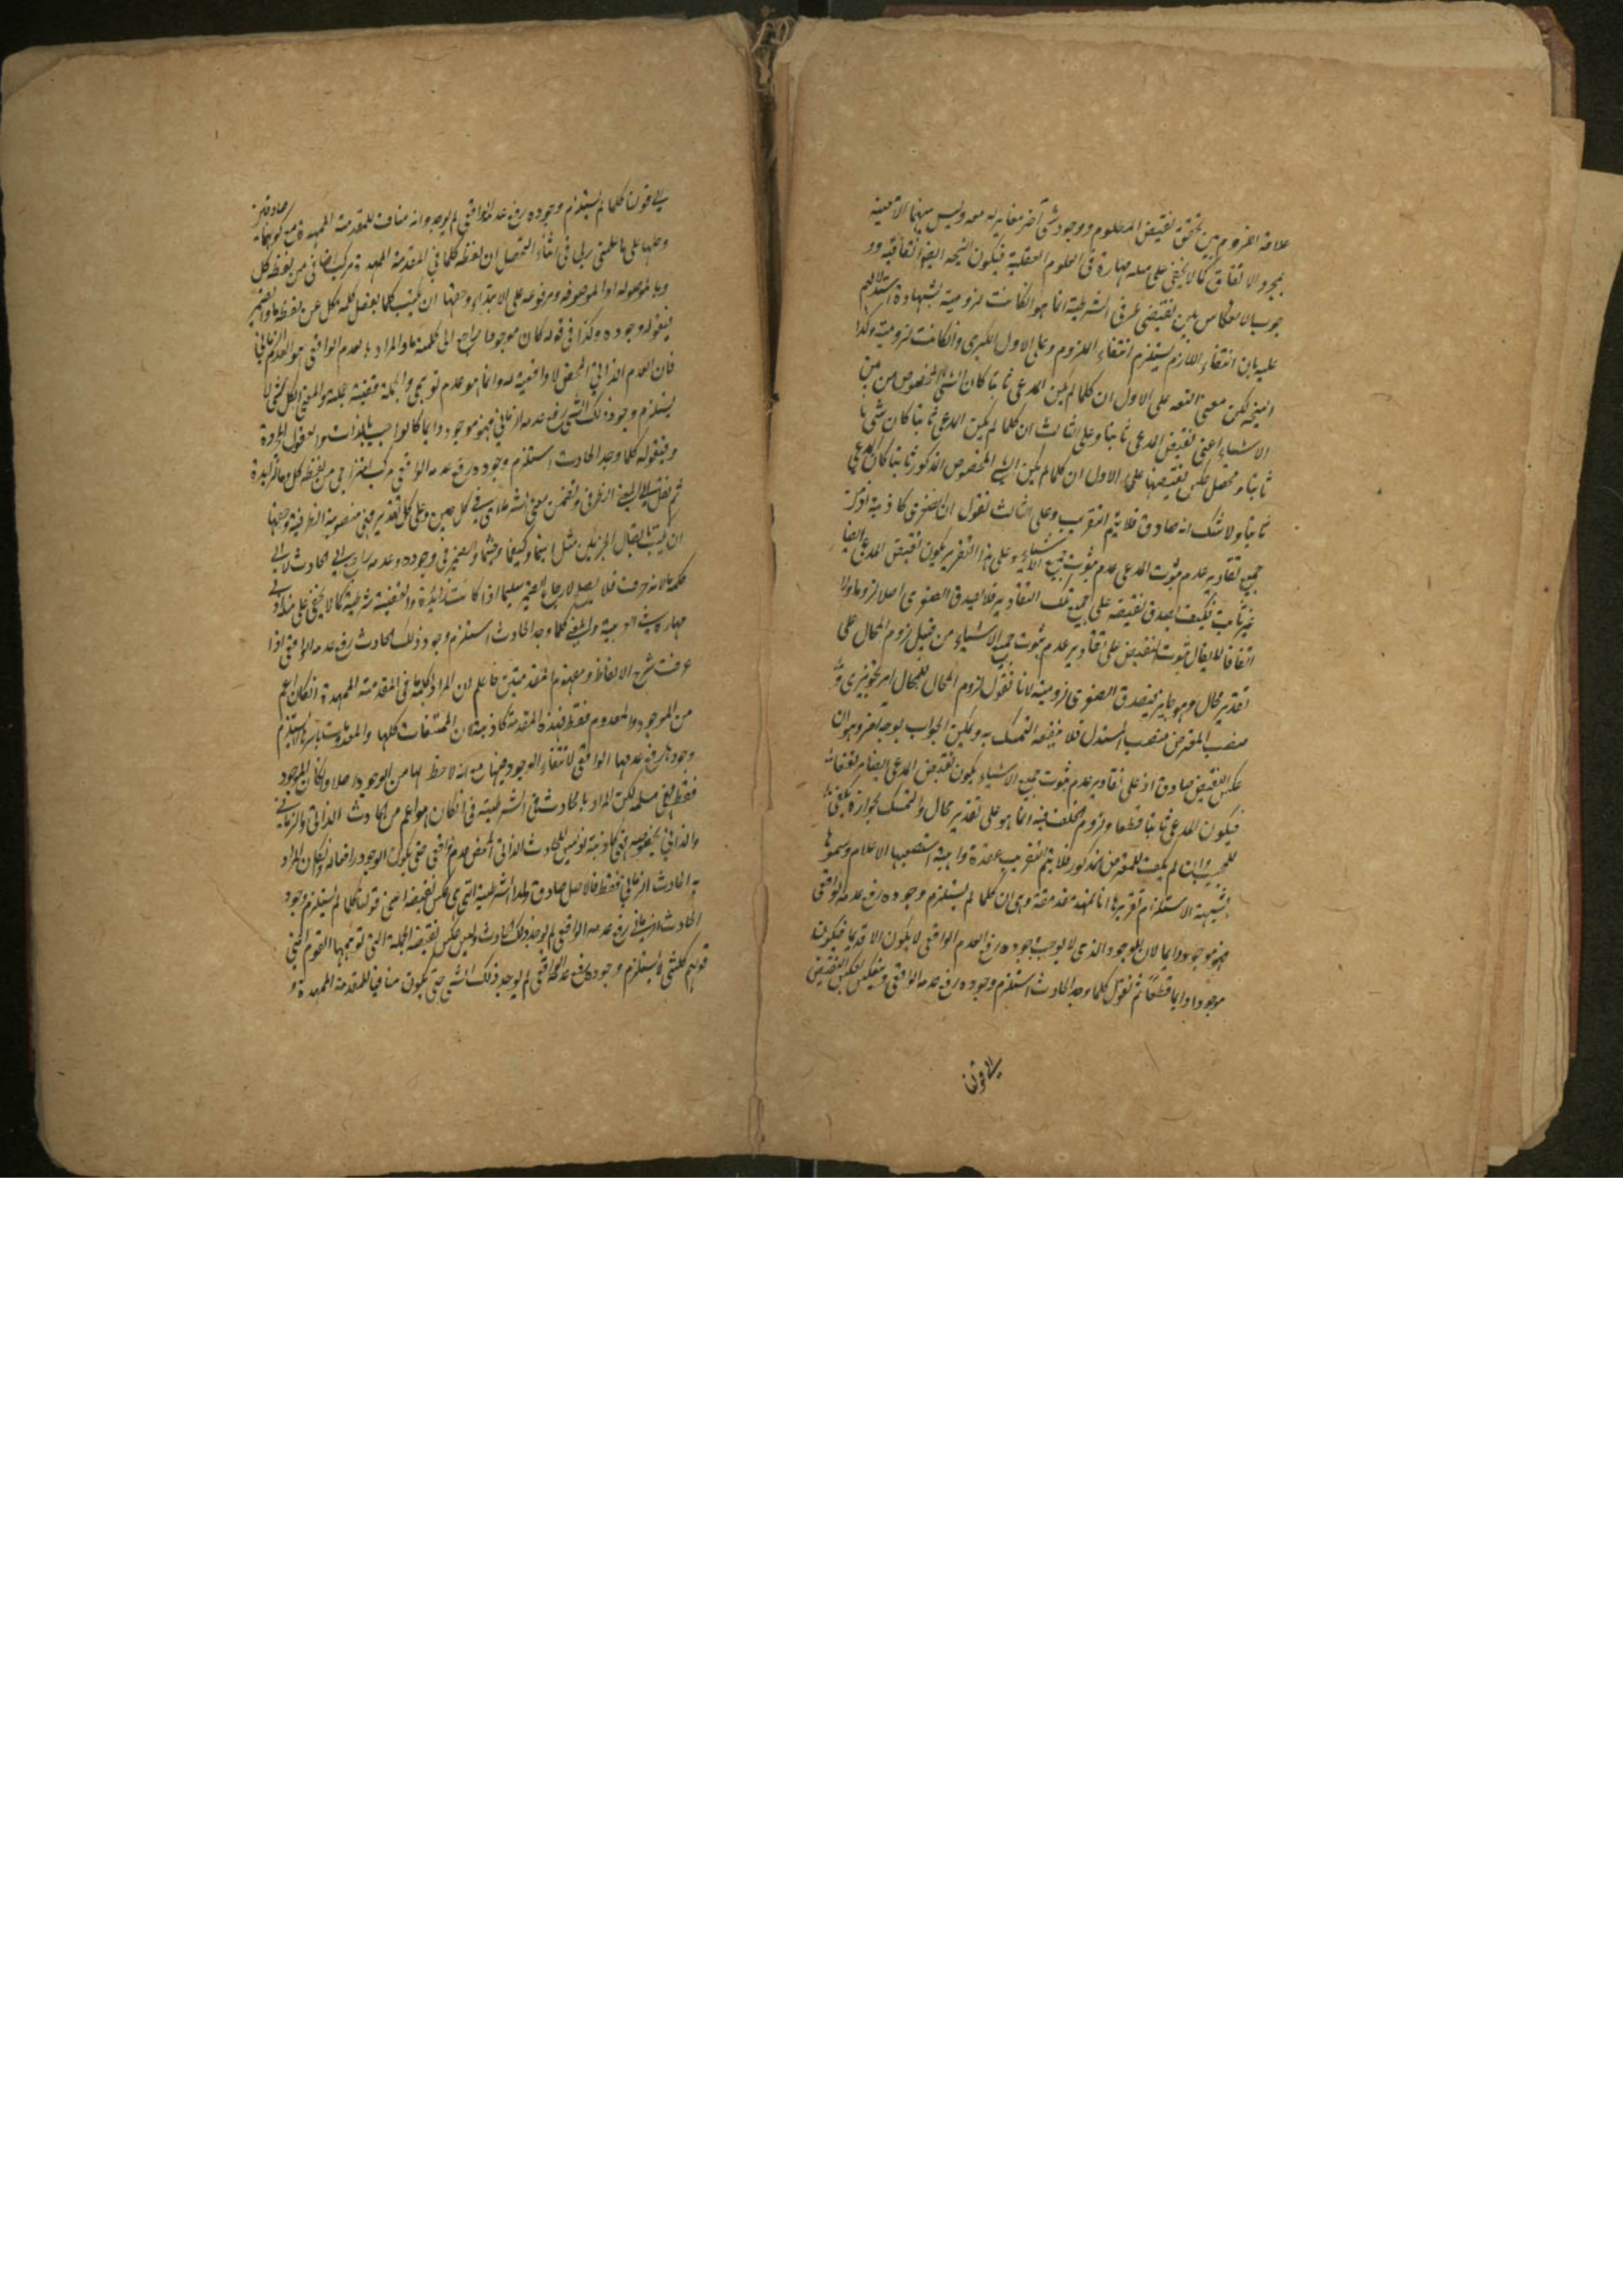 علاقة اللزوم بين تحقق نقيض المطلوم ووجود شئ آخر مغاير له معه وليس بينهما الا معية
بمجرد الاتفاق كما لا يخفى على من له مهارة فى العلوم العقلية فيكون النتيجه ايضا اتفاقية و
جوب الانعكاس بين نقيضى طرفى الشرطية انما هو اذا كانت لزومية بشهادة استدلالهم
عليه بان انتفاء اللازم يستلزم انتفاء الملزوم وعلى الاول الكبرى وان كانت لزومية وكذا
النتيجه لكن معنى النتيجه على الاول ان كلما لم يكن المدعى ثابتا كان الشئ المخصوص من بين
الاشياء اعنى نقيض المدعى ثابتا وعلى الثالث ان كلما لم يكن المدعى ثابتا كان شئ ما
ثابتا ومحصل عكس نقيضها على الاول ان كلما لم يكن الشئ المخصوص المذكور ثابتا كان المدعى
ثابتا ولا شك انه صادق فلا يتم التقريب وعلى الثالث نقول ان الصغرى كاذبة اذ من
جميع تقادير عدم ثبوت المدعى عدم ثبوت جميع الاشياء وعلى هذا التقدير يكون نقيض المدعى ايضا
غير ثابت فكيف يصدق نقيضه على جميع تلك التقادير فلا يصدق الصغرى اصلا لزوما ولا
اتفاقا لا يقال ثبوت النقيض على تقادير عدم ثبوت جميع الاشياء من قبيل لزوم المحال على
تقدير محال وهو جايز فيصدق الصغرى لزومية لانا نقول لزوم المحال للمحال امر تجويزى و
منصب المعترض منصب المستدل فلا ينفعه التمسك به ويمكن الجواب بوجه آخر وهو ان
عكس النقيض صادق اذ على تقادير عدم ثبوت جميع الاشياء يكون نقيض المدعى ايضا منتفيا
فيكون المدعى ثابتا قطعا ولزوم الخلف فيه انما هو على تقدير محال والتمسك بجوازه يكفى
للمجيب وان لم يكف للمعترض المذكور فلا يتم التقريب عقدة واهية استصعبها الاعلام وسموها
بشبهة الاستلزام تقريرها انا نمهد مقدمة وهى ان كلما لم يستلزم وجوده رفع عدمه الواقعى
فهو موجود دايما لان الموجود الذى لا يوجب وجوده رفع العدم الواقعى لا يكون الا قديما فيكون
موجودا دايما قطعا ثم نقول كلما وجد الحادث استلزم وجوده رفع عدمه الواقعى وينعكس بعكس النقيض
الى قولنا
الى قولنا كلما لم يستلزم وجوده رفع عدمه الواقعى لم يوجد وانه مناف للمقدمة الممهدة مع كونهما صادقين
وحلها على ما علمنى ربى فى اثناء التحصيل ان لفظة كلما فى المقدمة الممهدة مركب اضافى من لفظة كل
وما الموصولة او الموصوفة ومرفوعة على الابتداء وحقها ان يكتب كلما بفصل كلمة كل عن لفظة ما والضمير
فى قوله وجوده وكذا فى قوله كان موجودا راجع الى كلمة ما والمراد بالعدم الواقعى هو العدم الزمانى
فان العدم الذاتى المحض لا واقعية له وانما هو عدم توهمى والجملة قضية حملية والمعنى كل شئ لا
يستلزم وجود ذلك الشئ رفع عدمه الزمانى فهو موجود دايما كالواجب بالذات والعقول المجردة
وفى قوله كلما وجد الحادث استلزم وجوده رفع عدمه الواقعى مركب امتزاجى من لفظة كل وما الزايدة
ثم نقل الى المعنى الظرفى وتضمن معنى الشرط اى فى كل حين وعلى كل تقدير فهى منصوبة الظرفية وحقها
ان يكتب باتصال الجزئين مثل اينما وكيفما وحيثما والضمير فى وجوده وعدمه راجع الى الحادث لا الى
كلمة ما لانه حرف فلا يصلح لارجاع الضمير اليها اذا كانت زايدة والقضية شرطية كما لا يخفى على من له ادنى
مهارة فى العربية والمعنى كلما وجد الحادث استلزم وجود ذلك الحادث رفع عدمه الواقعى اذا
عرفت شرح الالفاظ ومفهوم المقدمتين فاعلم ان المراد بكلمة ما فى المقدمة الممهدة ان كان اعم
من الموجود والمعدوم فقط فهذه المقدمة كاذبة لان الممتنعات كلها والمعدومات باسرها لا يستلزم
وجودها رفع عدمها الواقعى لانتفاء الوجود عنها مع انه لا حظ لها من الوجود اصلا وان كان الموجود
فقط فهى مسلمة لكن المراد بالحادث فى الشرطية فى ان كان هو اعم من الحادث الذاتى والزمانى
والذاتى بخصوصه فهى كاذبة اذ ليس للحادث الذاتى المحض عدم واقعى حتى يكون الوجود رافعا له وان كان المراد
به الحادث الزمانى فقط فالاصل صادق وكذا الشرطية التى هى عكس نقيضه اعنى قولنا كلما لم يستلزم وجود
الحادث الزمانى رفع عدمه الواقعى لم يوجد ذلك الحادث وليس عكس نقيضه الحملية التى توهمها القوم اعنى
قولهم كل شئ لا يستلزم وجوده رفع عدمه الواقعى لم يوجد ذلك الشئ حتى يكون منافيا للمقدمة الممهدة و